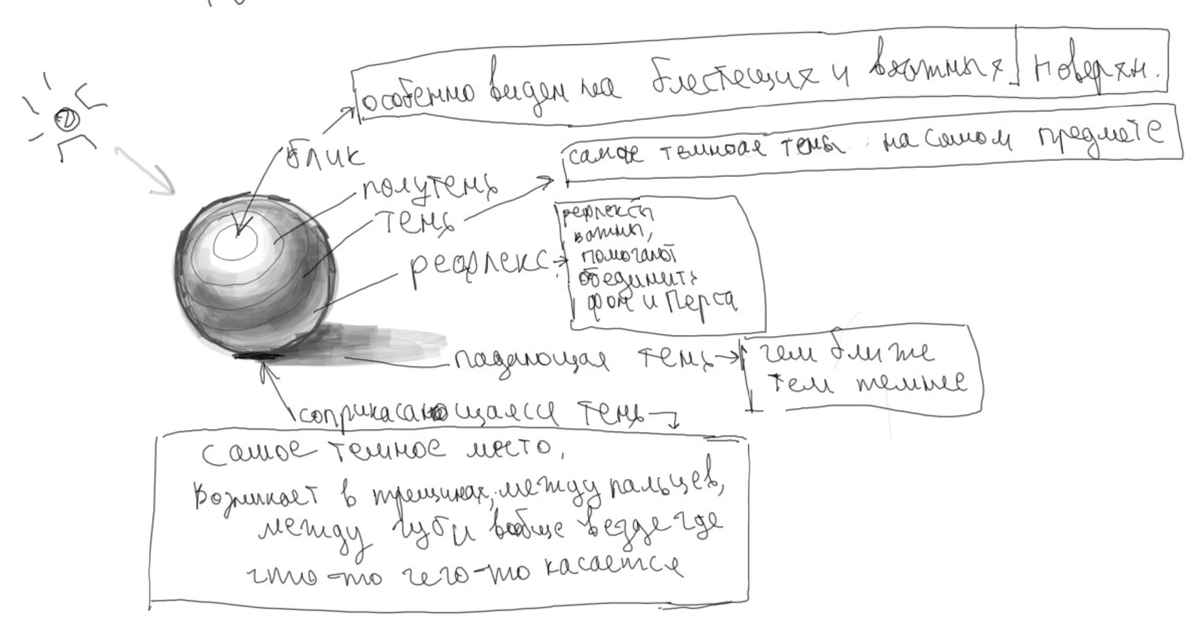 особенно виден на блестещих и влажных поверхн.
самое темное тень на самом предмете
блик
полутень
тень
рефлекс
рефлексы
важны,
помогают
обединить
фон и Перса
падающая тень
чем ближе
тем темнее
соприкасающаяся тень
самое темное место,
Возникает в трещинах, между пальцев,
между губ и вообще везде где
что-то чего-то касается